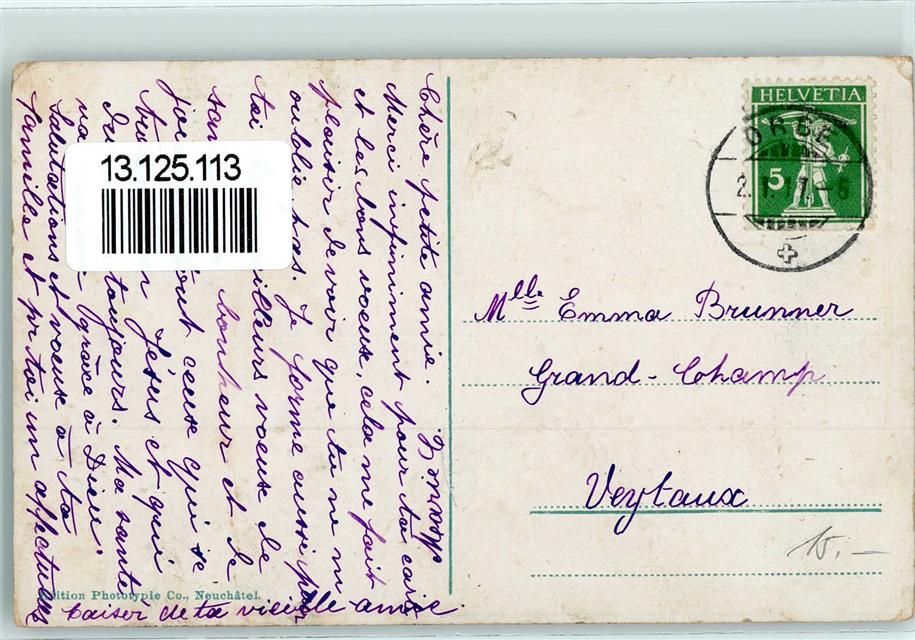 Chère petite amie.
Merci infiniment pour ta carte
et les bons voeux, cela me fait
plaisir de voir que tu ne m'
oublie pas. Je forme aussi pour
toi meilleurs voeux de
bonheur et de
ceux qui se
Jésus et qui
toujours. Ma santé
grâce à Dieu.
Salutations et voeux à ta
famille et pr toi un affectueux
baiser de ta vieille amie.
13.125.113
Edition Phototypie Co., Neuchâtel.
HELVETIA
5
ORBE
Mlle Emma Brunner
Grand-Champ
Veytaux